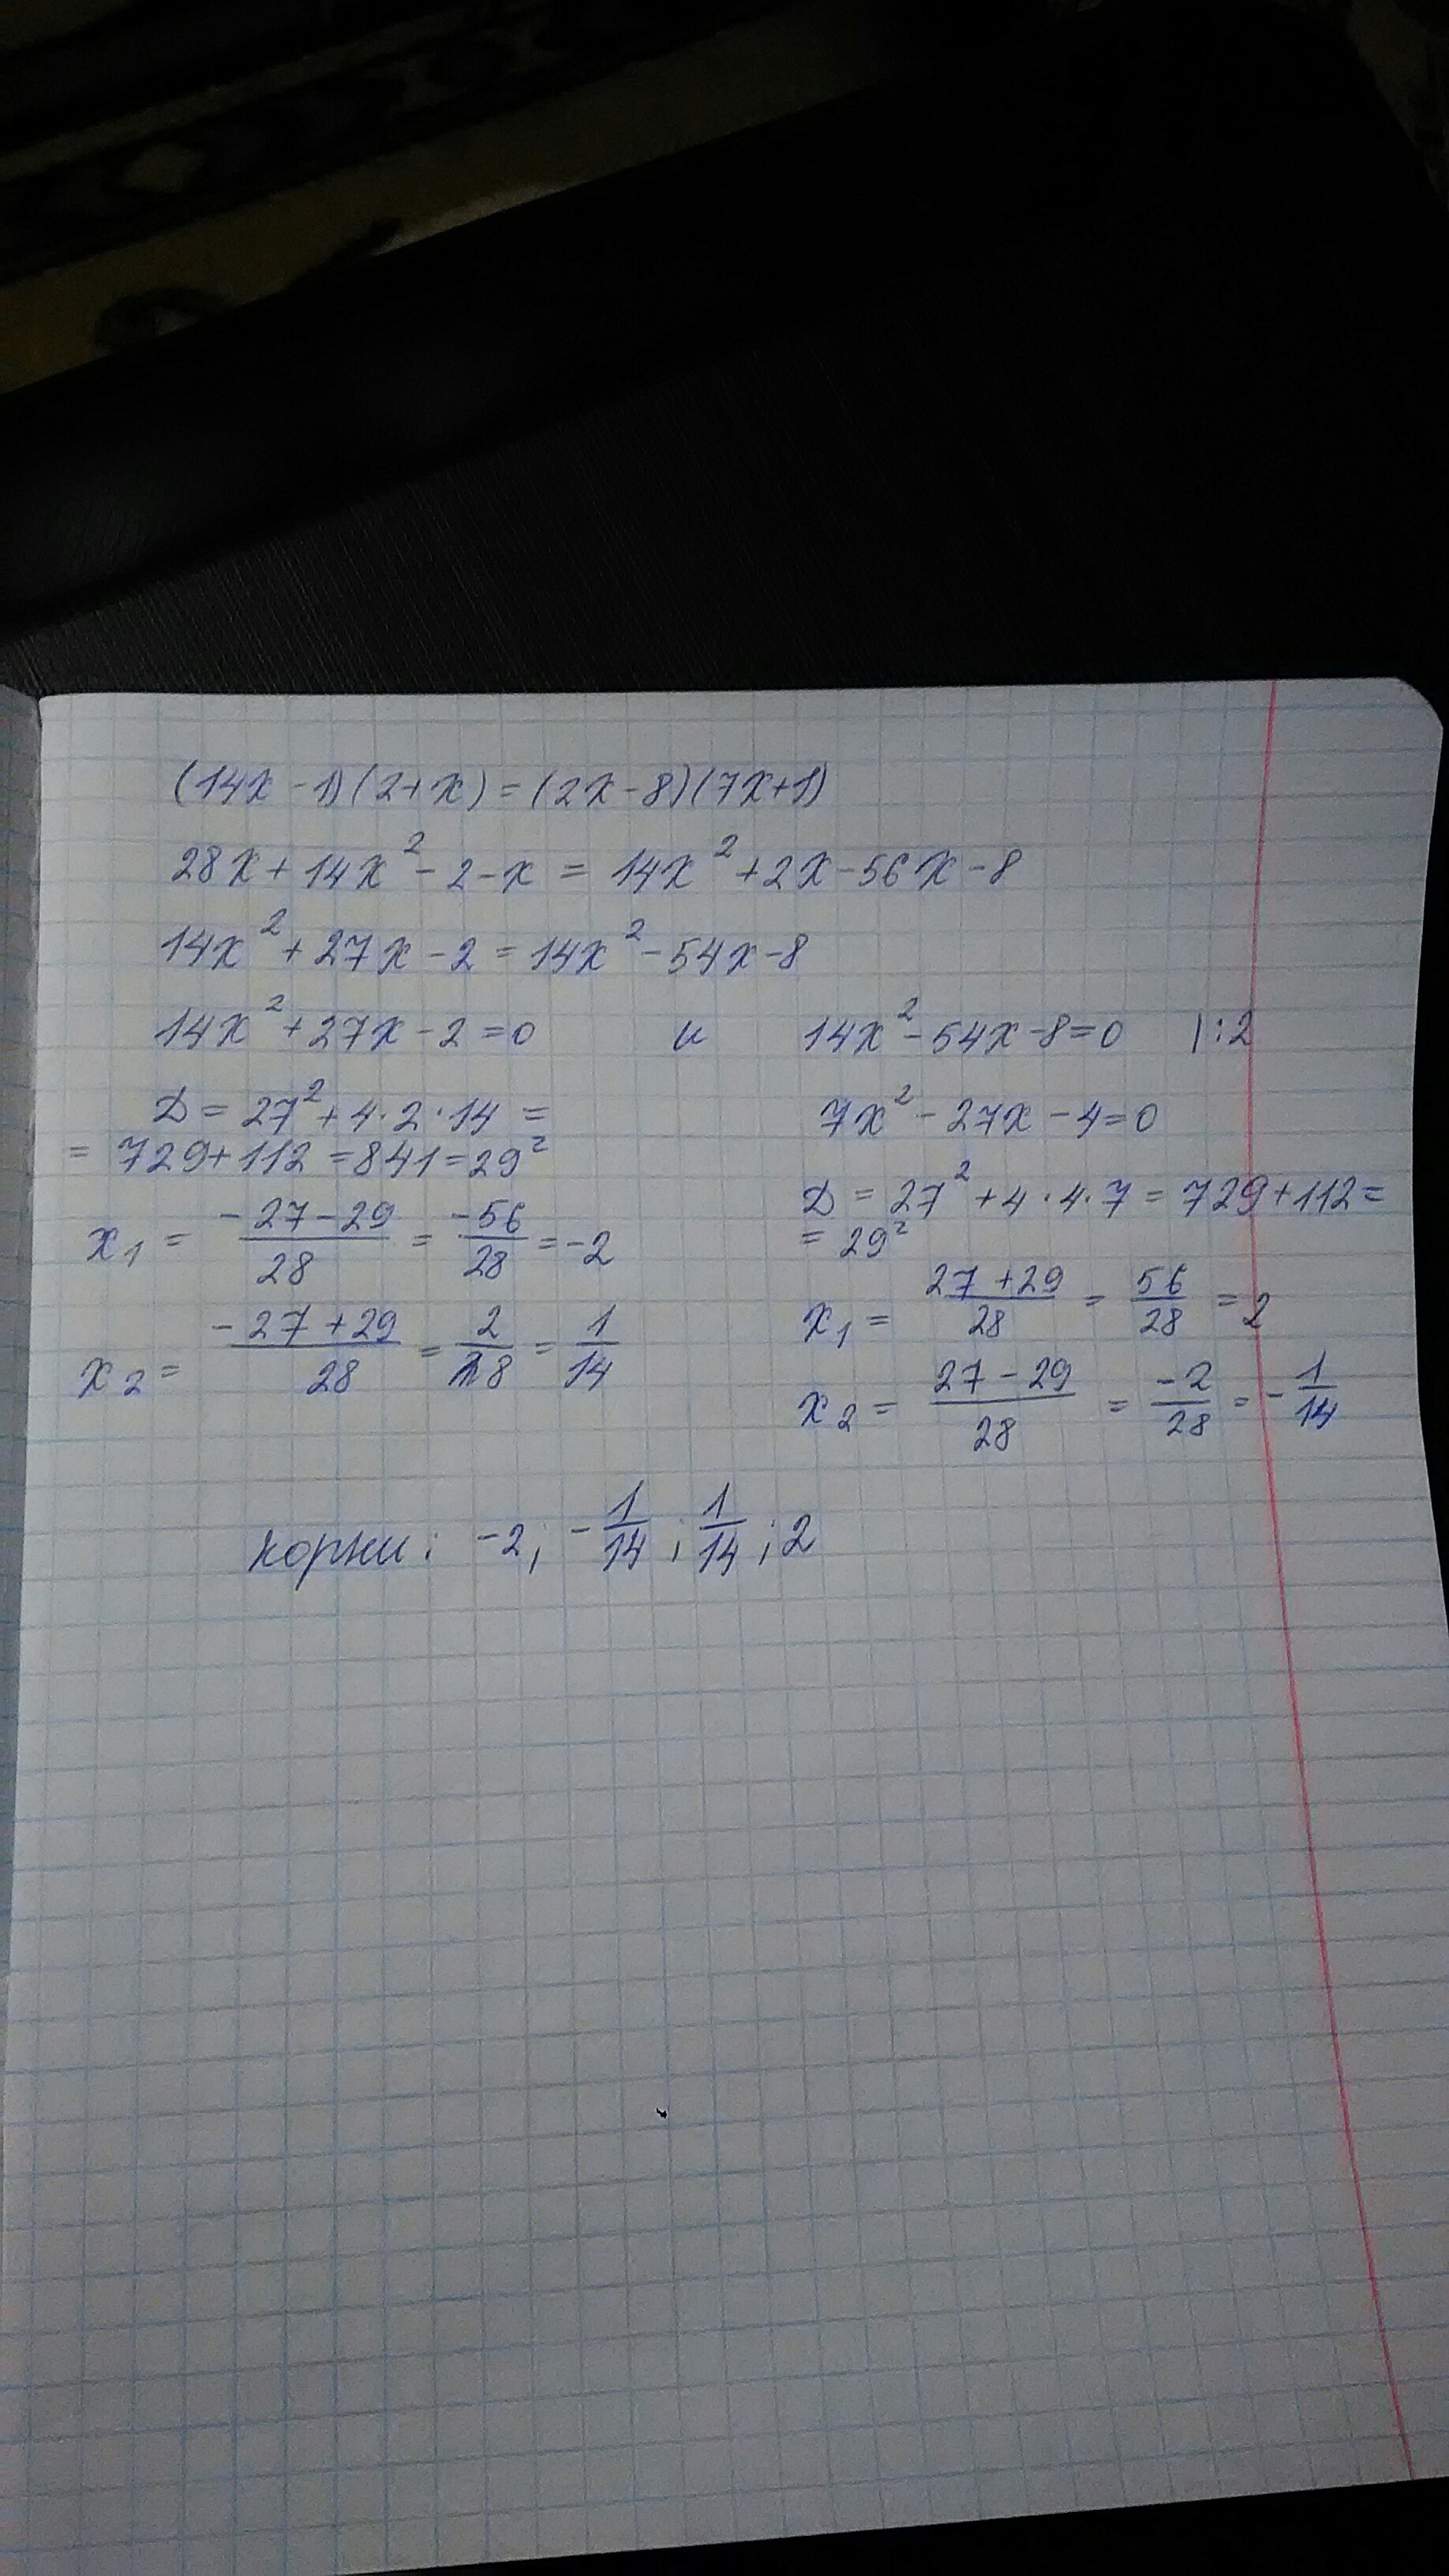 (14x-1)(2+x)=(2x-8)(7x+1)
28x+14x²-2-x = 14x²+2x-56x-8
14x²+27x-2=14x²-54x-8
14x²+27x-2=0 и 14x²-54x-8=0 |:2
D = 27²+4·2·14 =
= 729+112=841=29²
x₁ = (-27-29)/28 = -56/28 = -2
x₂ = (-27+29)/28 = 2/28 = 1/14
7x²-27x-4=0
D = 27²+4·4·7 = 729+112=
= 29²
x₁ = (27+29)/28 = 56/28 = 2
x₂ = (27-29)/28 = -2/28 = -1/14
корни: -2; -1/14; 1/14; 2